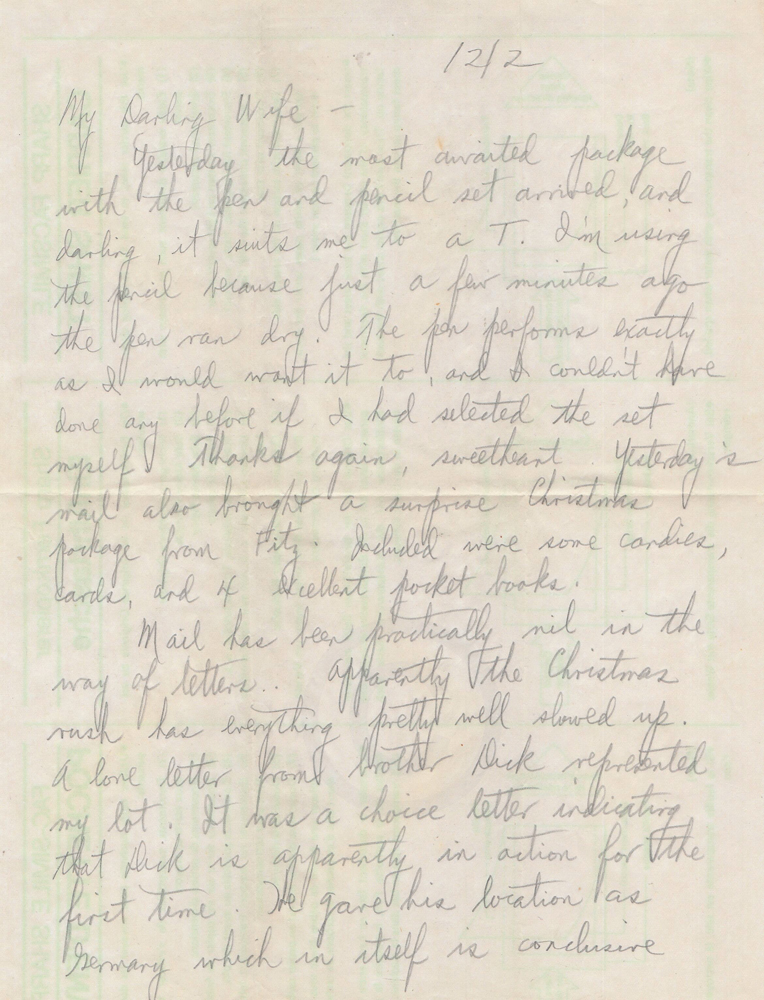 12/2
My Darling Wife –
Yesterday the most awaited package
with the pen and pencil set arrived, and
darling, it suits me to a T. I'm using
the pencil because just a few minutes ago
the pen ran dry. The pen performs exactly
as I would want it to, and I couldn't have
done any before if I had selected the set
myself. Thanks again, sweetheart. Yesterday's
mail also brought a surprise Christmas
package from Fitz. Included were some candies,
cards, and 4 excellent pocket books.
Mail has been practically nil in the
way of letters.. Apparently the Christmas
rush has everything pretty well slowed up.
A lone letter from brother Dick represented
my lot. It was a choice letter indicating
that Dick is apparently in action for the
first time. He gave his location as
Germany which in itself is conclusive